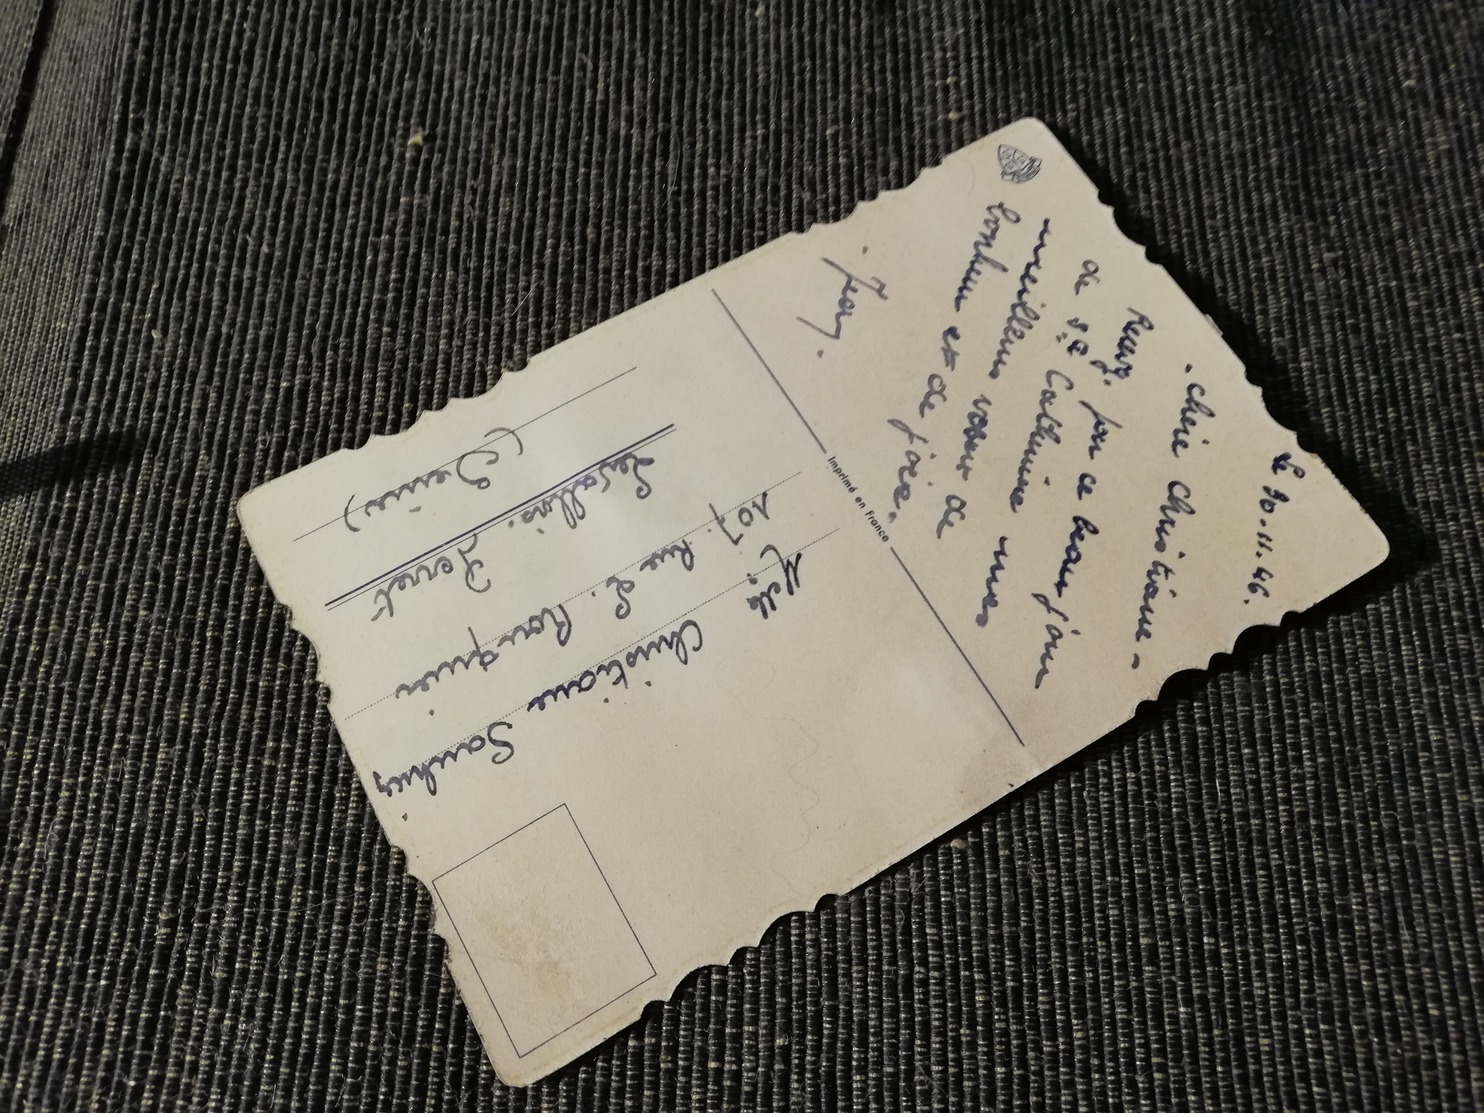 Le 20.11.46.
Chère Christiane -
Recevez, pour ce beau jour
de Ste Catherine mes
meilleurs vœux de
bonheur et de joie.
Imprimé en France
Melle Christiane
107 Rue L. Rouquier
Levallois. Perret
(Seine)